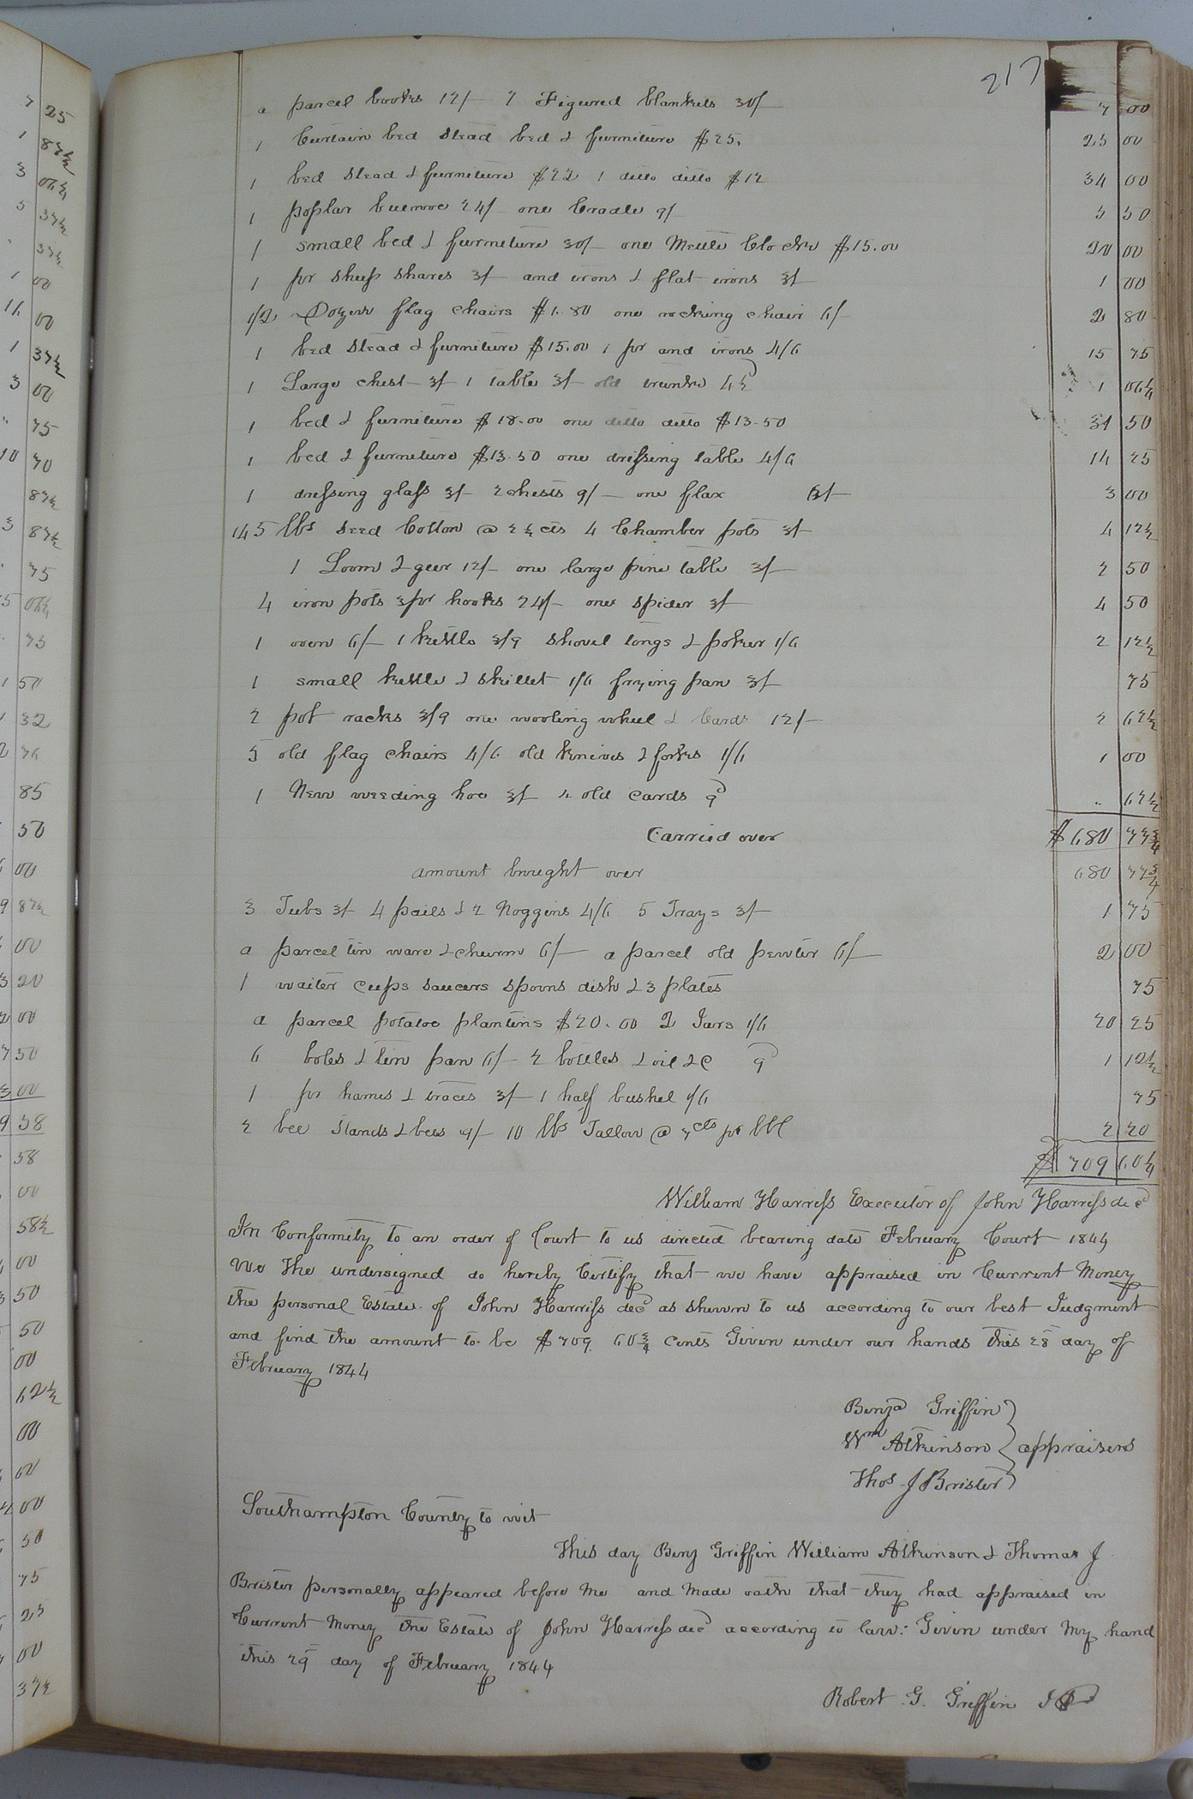 217
a parcel books 12/– 2 Figured blankets 30/– 7 00
1 Curtain bed stead bed & furniture $25. 25 00
1 bed stead & furniture $22 1 ditto ditto $12 34 00
1 poplar bureau 24/– one Cradle 9/– 5 50
1 small bed & furniture 30/– one Mettle Clocke $15.00 20 00
1 pr sheep shares 3/– and irons & flat irons 3/– 1 00
1/2 Dozen flag chairs $1.80 one rocking chair 6/– 2 80
1 bed stead & furniture $15.00 1 pr and irons 4/6 15 75
1 Large chest 3/– 1 table 3/– old trunke 4½d 1 06¼
1 bed & furniture $18.00 one ditto ditto $13.50 31 50
1 bed & furniture $13.50 one dressing table 4/6 14 25
1 dressing glass 3/– 2 chests 9/– one flax 6/– 3 00
145 lbs Seed Cotton @ 2½ cts 4 Chamber pots 3/– 4 12½
1 Loom & geer 12/– one large pine table 3/– 2 50
4 iron pots 3 pr hooks 24/– one spider 3/– 4 50
1 oven 6/– 1 kettle 3/9 shovel tongs & poker 1/6 2 12½
1 small kettle & skillet 1/6 frying pan 3/– 75
2 pot racks 3/9 one wooling wheel & Cards 12/– 2 62½
5 old flag chairs 4/6 old knives & forkes 1/6 1 00
1 New weeding hoe 3/– 4 old cards 9d " 62½
Carried over $680 77¾
amount brought over 680 77¾
3 Tubs 3/– 4 pails & 2 Noggins 4/6 5 Trays 3/– 1 75
a parcel tin ware & churn 6/– a parcel old pewter 6/– 2 00
1 waiter cups saucers spoons dish & 3 plates 75
a parcel potatoe plantins $20.00 2 Jars 1/6 20 25
6 boles & tin pan 6/– 2 bottles & oil &c 9d 1 12½
1 pr hames & traces 3/– 1 half bushel 1/6 75
2 bee stands & bees 9/– 10 lbs Tallow @ 7cts pr lbl 2 20
$709 60¼
William Harriss Executor of John Harriss decd
In Conformity to an order of Court to us directed bearing date February Court 1844
We the undersigned do hereby Certify that we have appraised in Current Money
the personal Estate of John Harriss decd as shewn to us according to our best Judgment
and find the amount to be $709 60¾ cents Given under our hands this 28th day of
February 1844
Benja Griffin
Wm Atkinson appraisers
Thos J Barister
Southampton County to wit
This day Benj Griffin William Atkinson & Thomas J
Barister personally appeared before me and made oath that they had appraised in
Current Money the Estate of John Harriss decd according to law: Given under my hand
this 29th day of February 1844
Robert G. Griffin JP